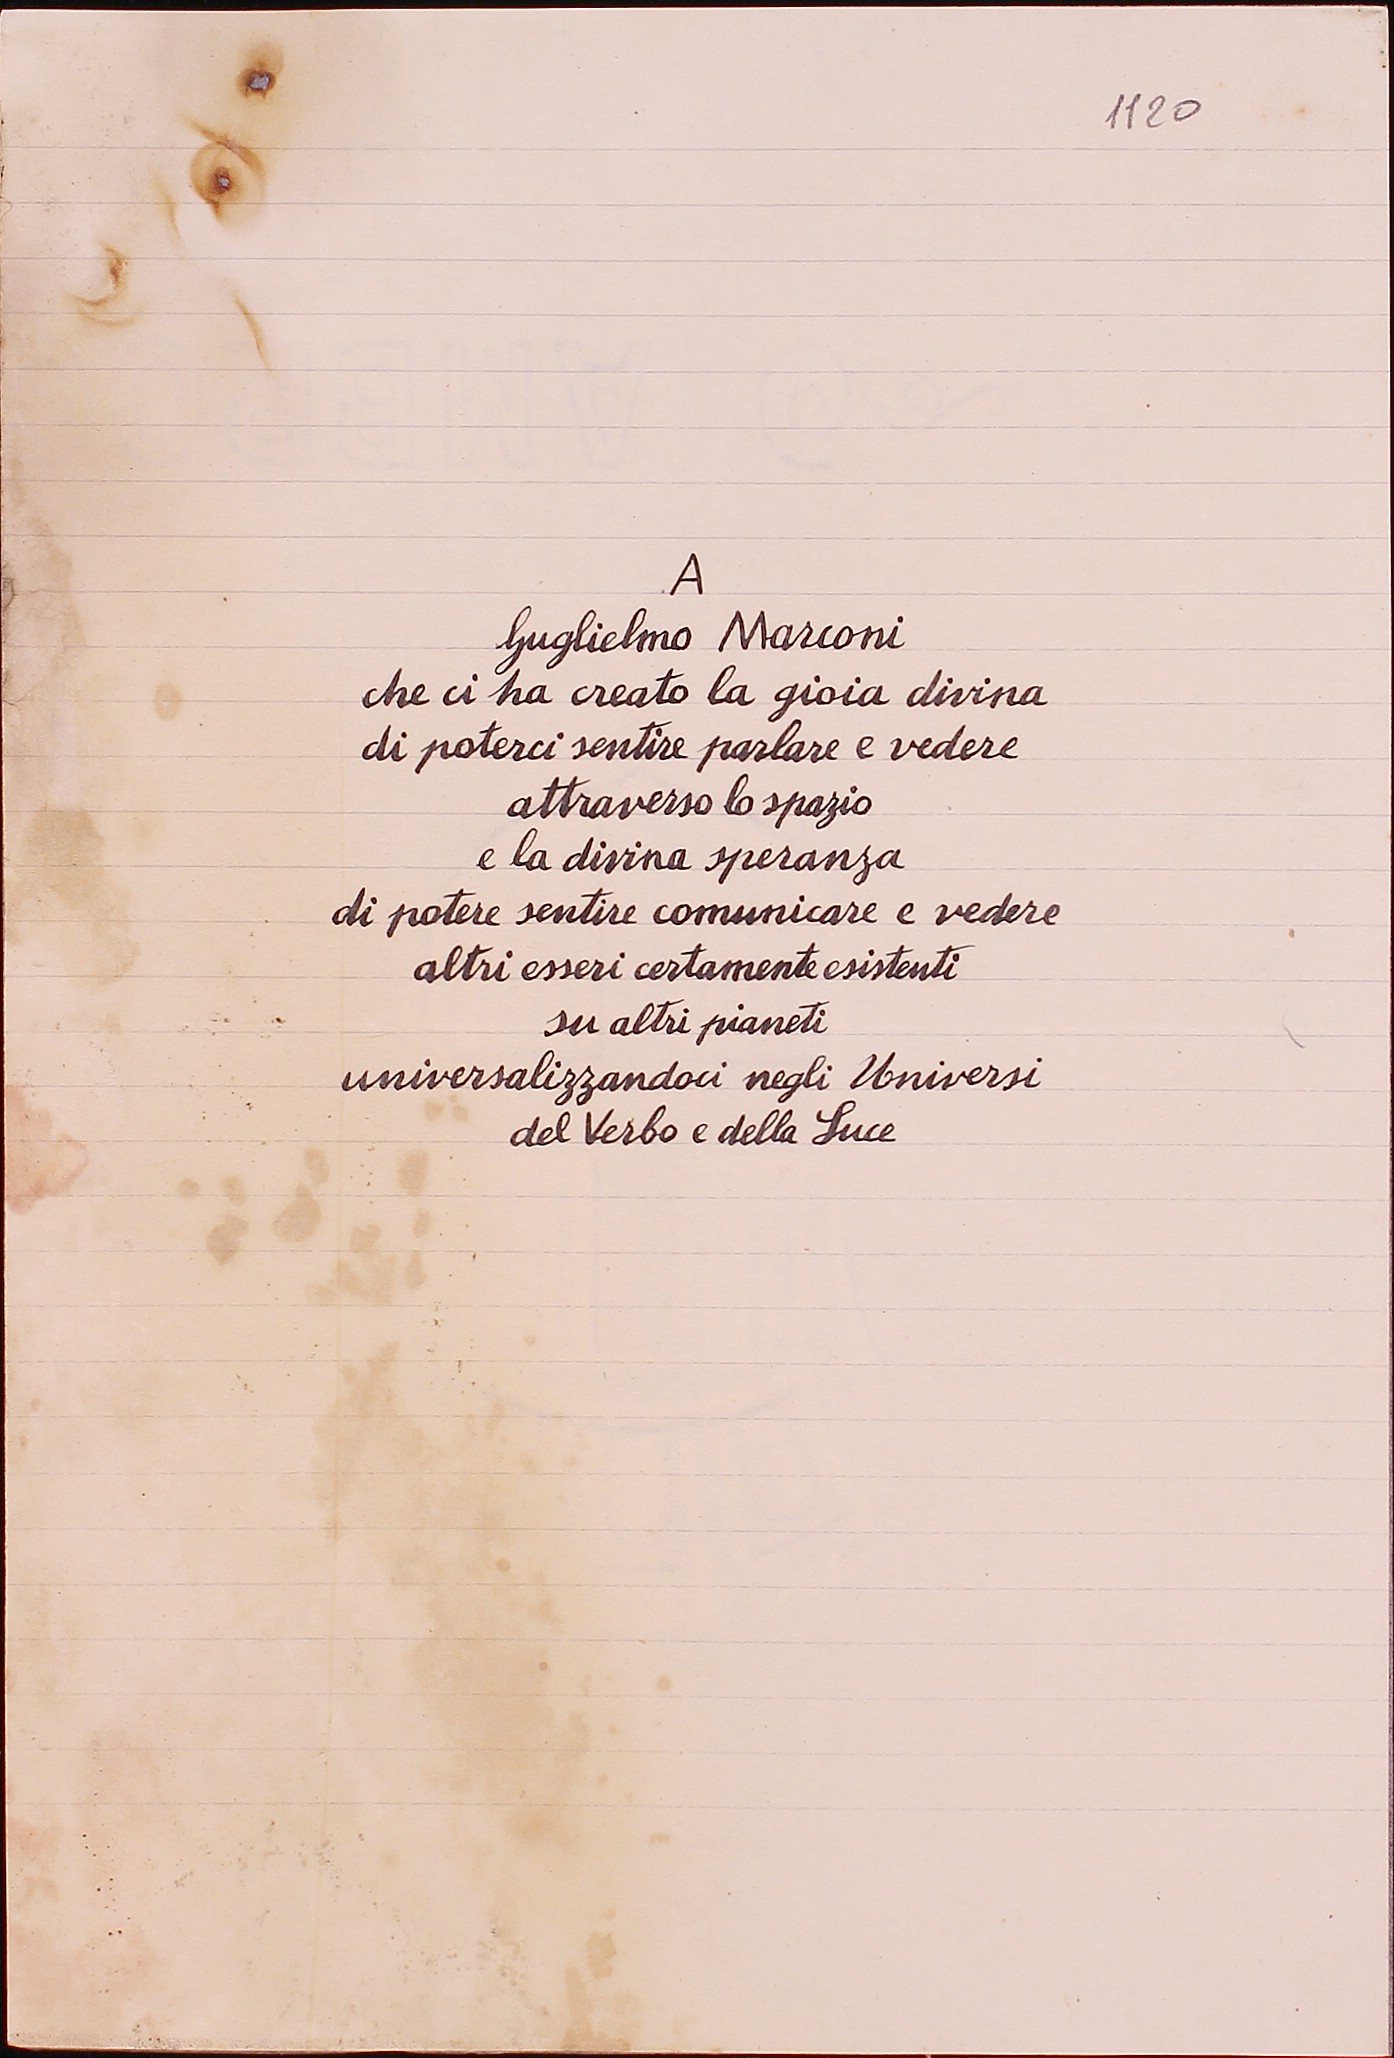 1120
A
Guglielmo Marconi
che ci ha creato la gioia divina
di poterci sentire parlare e vedere
attraverso lo spazio
e la divina speranza
di potere sentire comunicare e vedere
altri esseri certamente esistenti
su altri pianeti
universalizzandoci negli Universi
del Verbo e della Luce